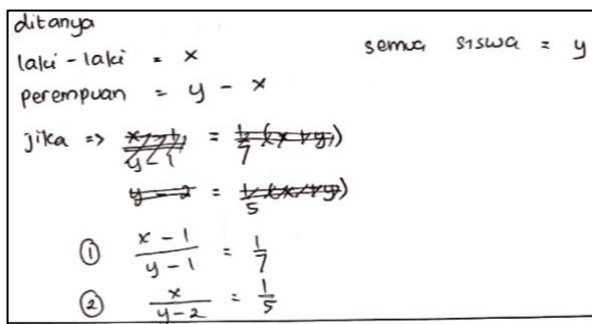 ditanya
laki-laki = x semua siswa = y
perempuan = y - x
jika => = 1/7 (x + y)
y - 2 = 1/5 (x + y)
① (x - 1)/(y - 1) = 1/7
② x/(y - 2) = 1/5